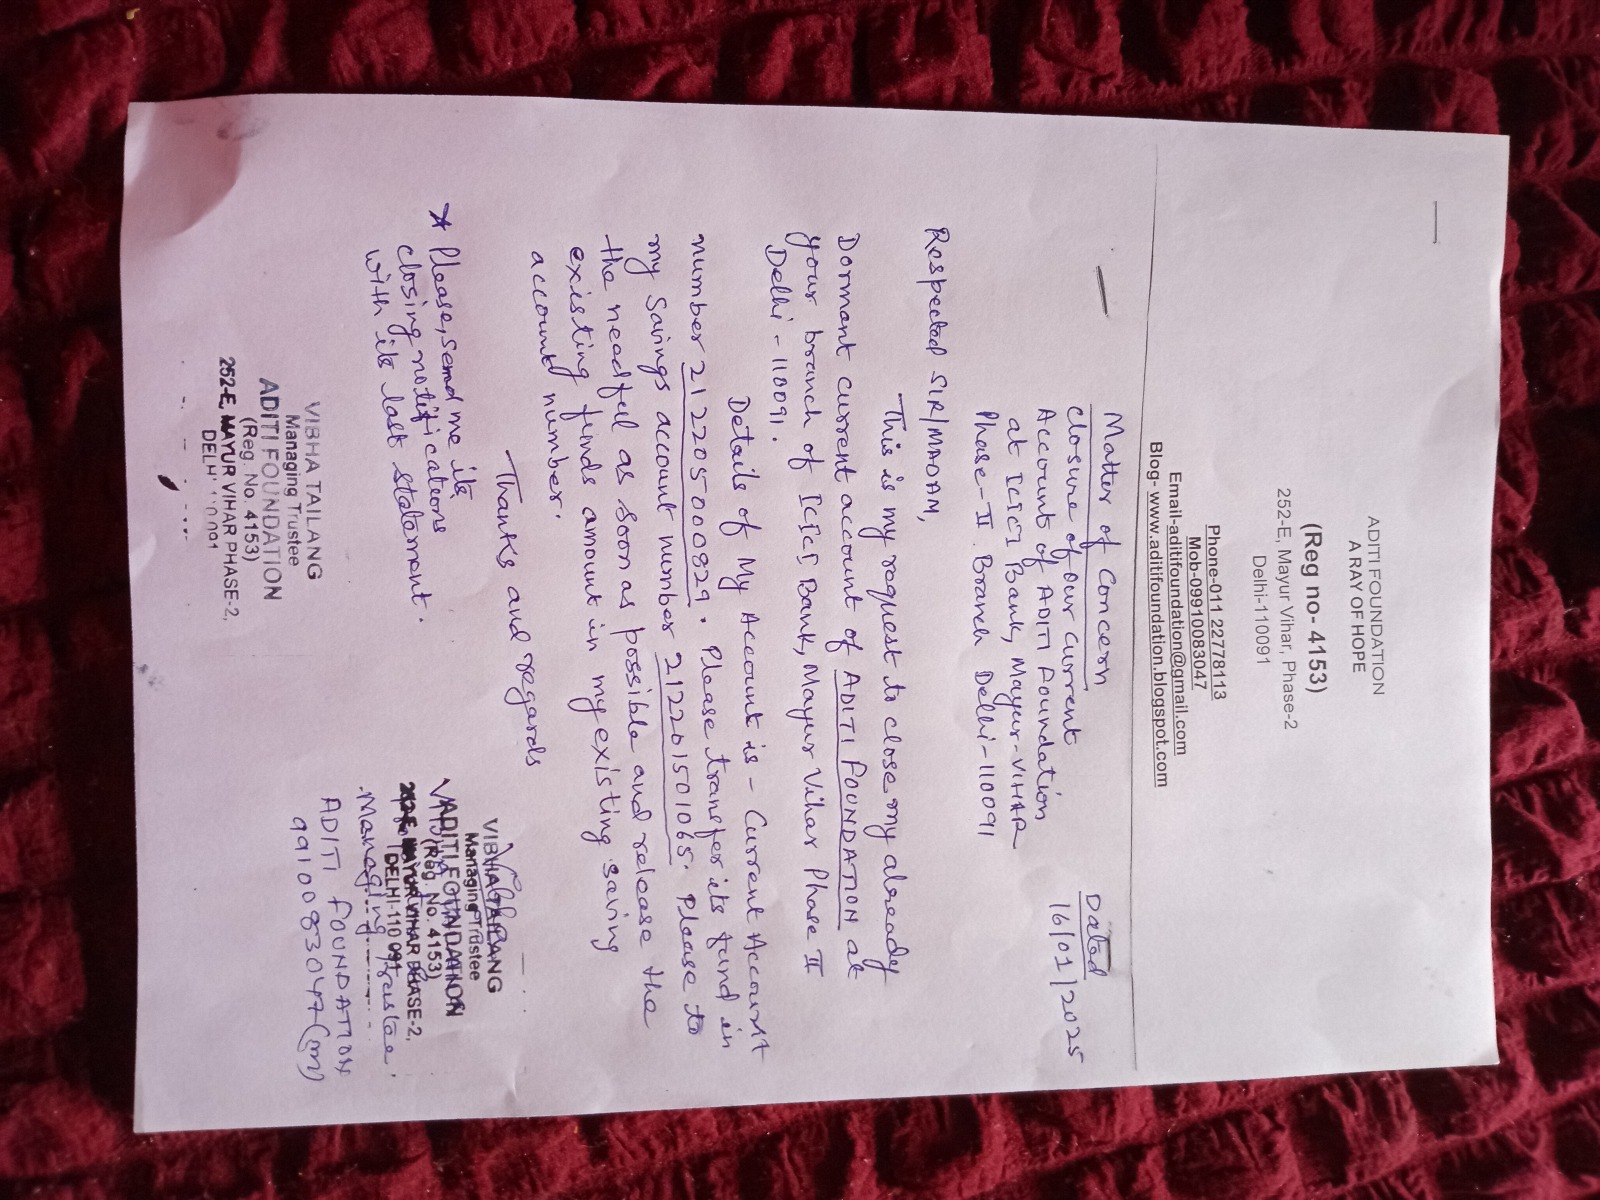 ADITI FOUNDATION
A RAY OF HOPE
(Reg no- 4153)
252-E, Mayur Vihar, Phase-2
Delhi-110091
Phone-011 22778113
Mob-09910083047
Email-aditifoundation@gmail.com
Blog- www.aditifoundation.blogspot.com
Dated
16/01/2025
Matter of Concern
closure of our current
Account of ADITI Foundation
at ICICI Bank, Mayur-VIHAR
Phase-II Branch Delhi-110091
Respected SIR/MADAM,
This is my request to close my already
Dormant current account of ADITI FOUNDATION at
your branch of ICICI Bank, Mayur Vihar Phase II
Delhi-110091.
Details of My Account is - Current Account
number 212205000829. Please transfer its fund in
my savings account number 212201501065. Please to
the needful as soon as possible and release the
existing funds amount in my existing saving
account number.
Thanks and regards
* Please, send me its
closing notifications
with its last statement.
VIBHA TAILANG
Managing Trustee
ADITI FOUNDATION
(Reg. No. 4153)
252-E, MAYUR VIHAR PHASE-2,
DELHI-110 091
Managing Trustee.
ADITI FOUNDATION
9910083047(m)
VIBHA TAILANG
Managing Trustee
ADITI FOUNDATION
(Reg. No. 4153)
252-E, MAYUR VIHAR PHASE-2,
DELHI-110 091